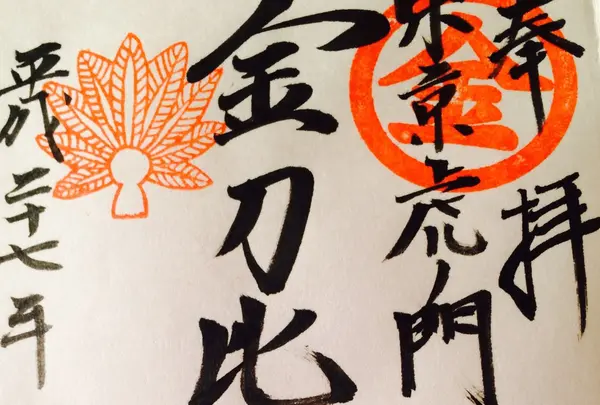 奉拝
東京虎ノ門
金
金刀比
平成二十七年